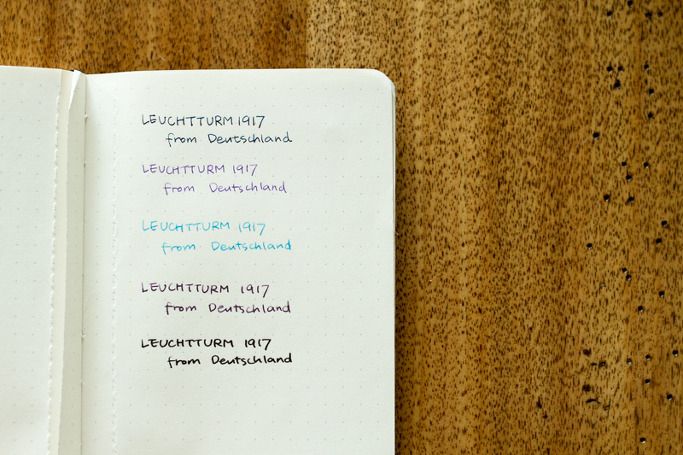 LEUCHTTURM 1917
from Deutschland
LEUCHTTURM 1917
from Deutschland
LEUCHTTURM 1917
from Deutschland
LEUCHTTURM 1917
from Deutschland
LEUCHTTURM 1917
from Deutschland